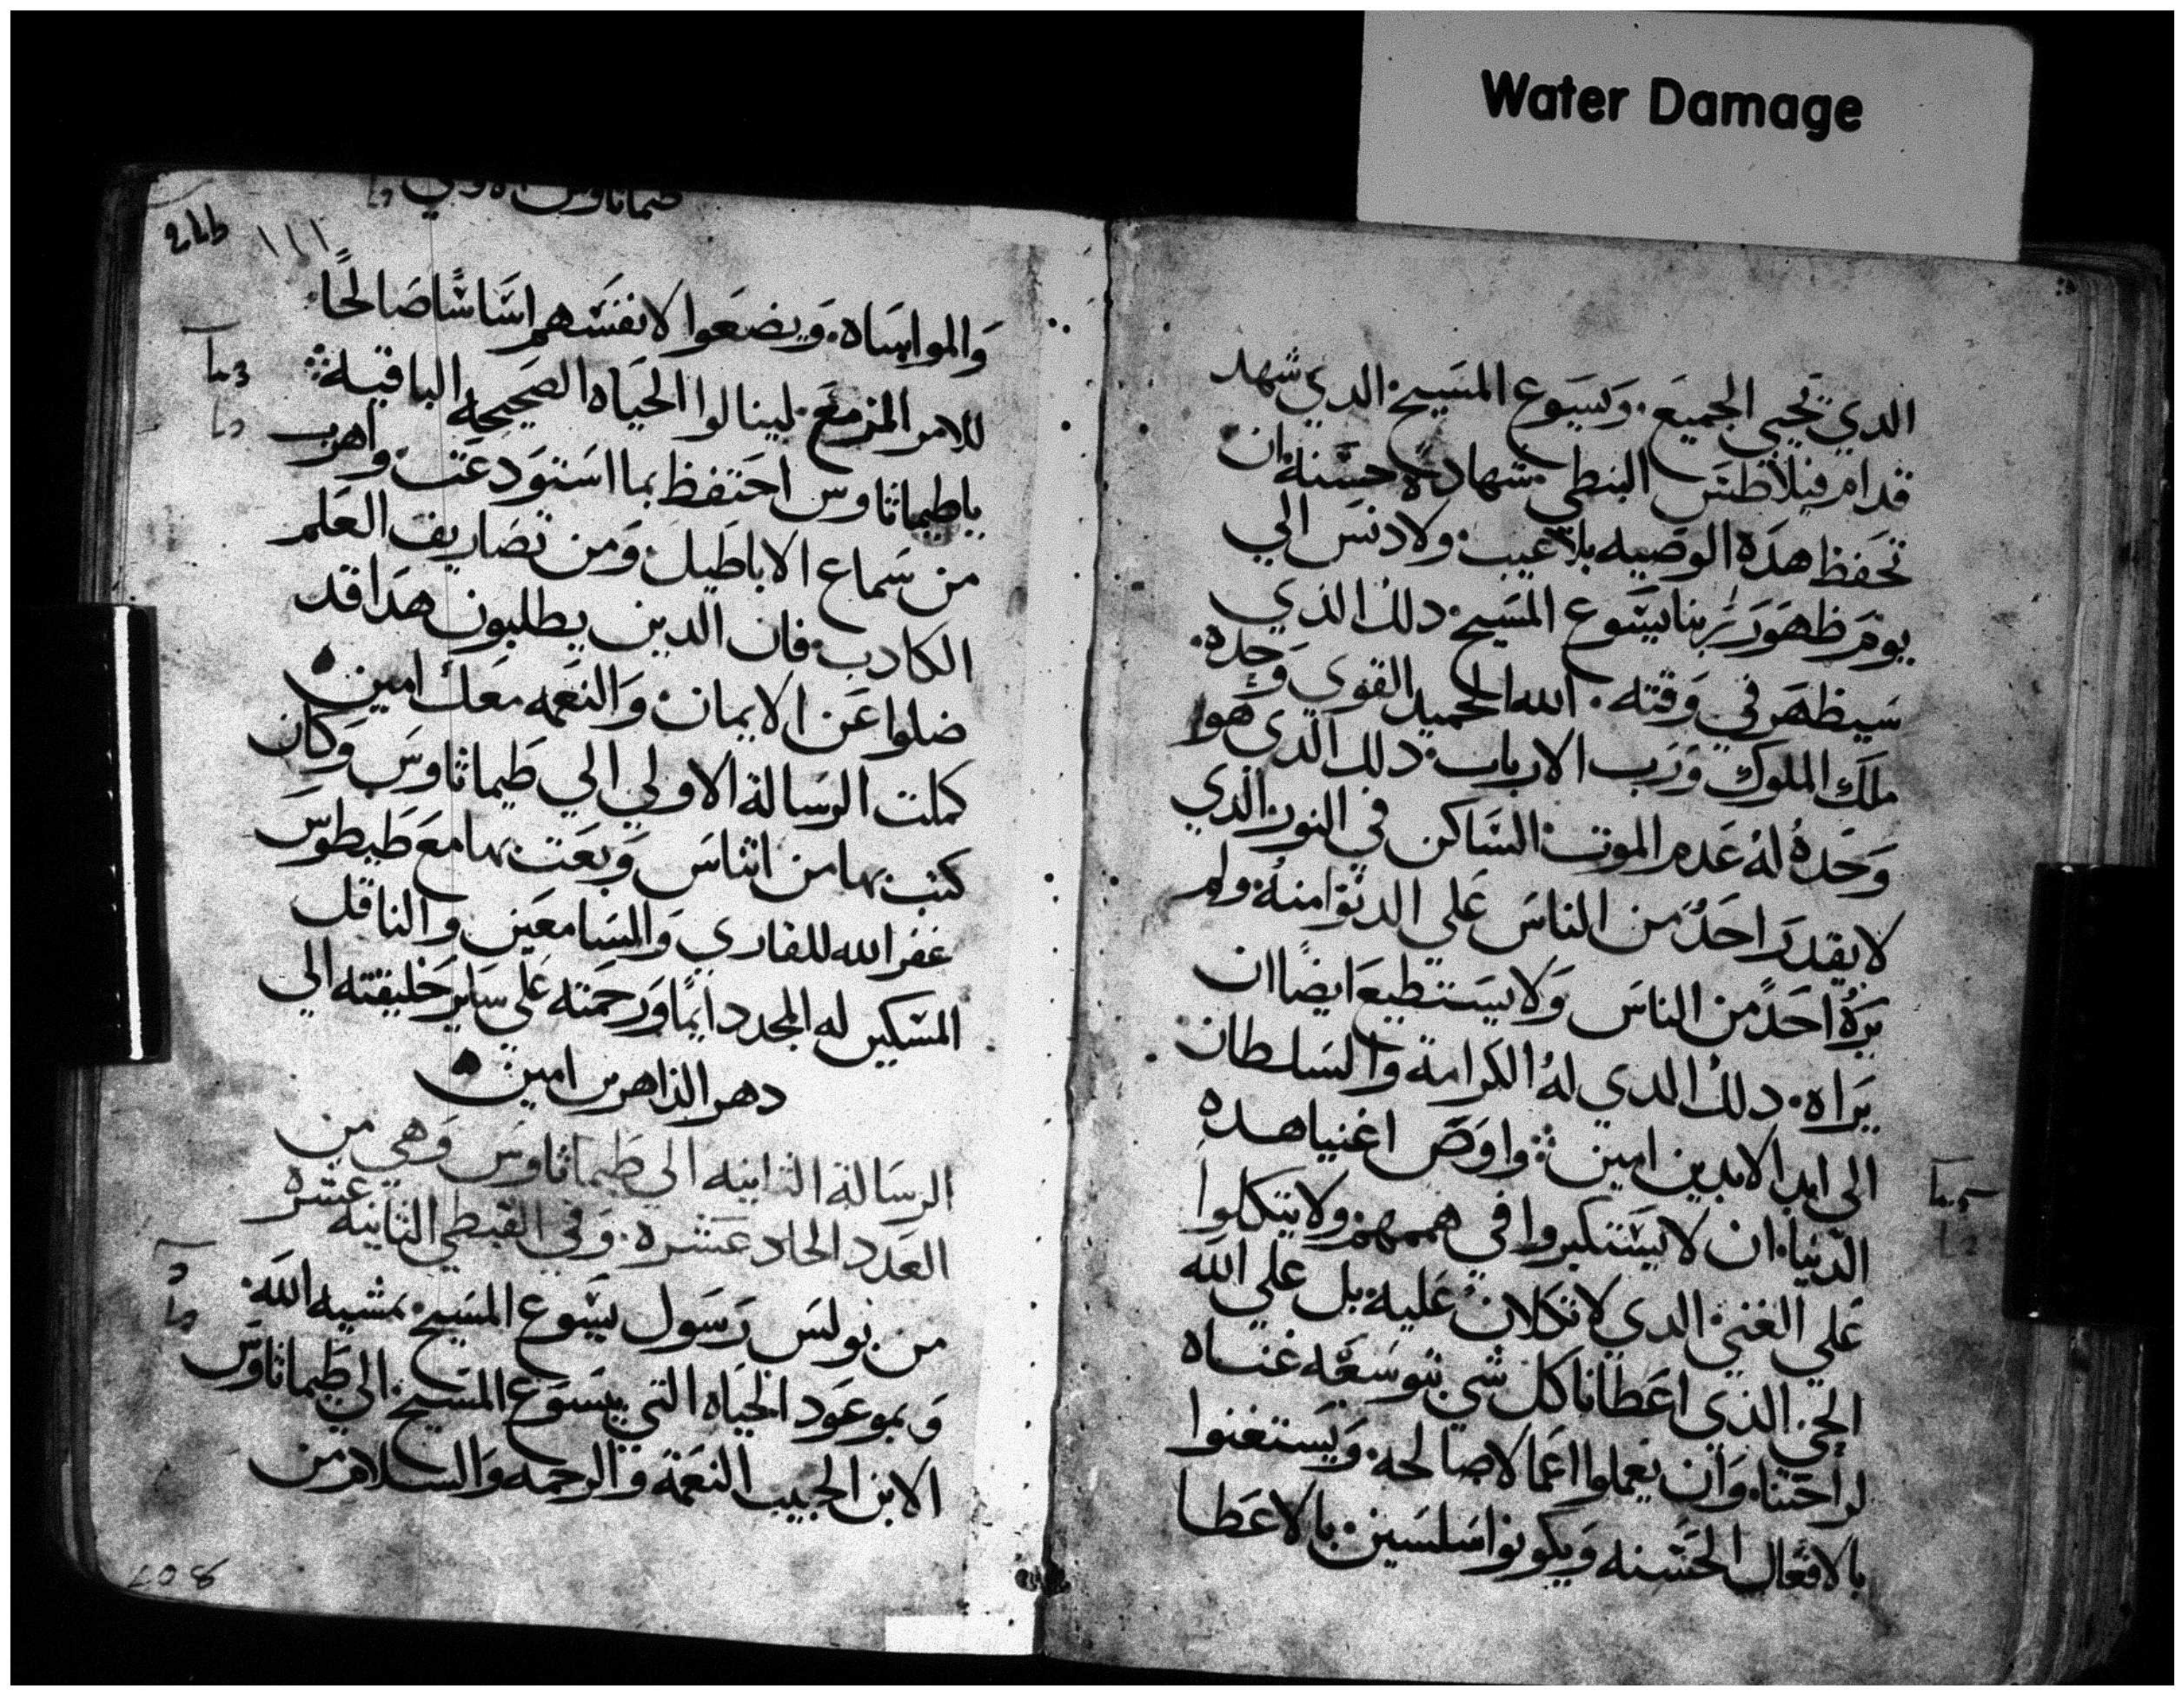 Water Damage
الدي تحيي الجميع. ويسوع المسيح الدي شهد
قدام فيلاطس البنطي شهادة حسنة ان
تحفظ هده الوصيه بلا عيب. ولا دنس الي
يوم ظهور ربنا يسوع المسيح. دلك الذي
سيظهر في وقته. الله الحميد القوي وحده.
ملك الملوك ورب الارباب. دلك الذي هوا
وحده له عدم الموت. الساكن في النور الذي
لا يقدر احد من الناس علي الدنو امنه. ولم
يره احد من الناس ولا يستطيع ايضا ان
يراه. دلك الدي له الكرامة والسلطان
الى ابد الابدين امين. واوص اغنيا هده
الدنيا. ان لا يستكبروا في هممهم ولا يتكلوا
علي الغني. الدي لا تكلان عليه. بل علي الله
الحي. الذي اعطانا كل شي بتوسعه غناه
لراحتنا. وان يعملوا اعمالا صالحه. ويستغنوا
بالافعال الحسنه ويكونوا سلسين بالاعطا
١١١
والمواساه. ويضعوا لانفسهم اساسا صالحا
للامر المزمع. لينالوا الحياه الصحيحه الباقية
ياطيماثاوس احتفظ بما استودعت. واهرب
من سماع الاباطيل. ومن تصاريف العلم
الكادب. فان الدين يطلبون هدا قد
ضلوا عن الايمان. والنعمه معك امين
كملت الرسالة الاولي الي طيماثاوس وكان
كتب بها من اثناس وبعت بها مع طيطوس
غفر الله للقاري والسامعين والناقل
المسكين له المجد دايما ورحمته علي ساير خليقته الي
دهر الداهرين امين
الرسالة الثانيه الي طيماثاوس وهي من
العدد الحاد عشره. وفي القبطي الثانيه عشره
من بولس رسول يسوع المسيح. بمشيه الله.
وبموعود الحياه التي بيسوع المسيح الي طيماثاوس
الابن الحبيب النعمة والرحمه والسلام من
208